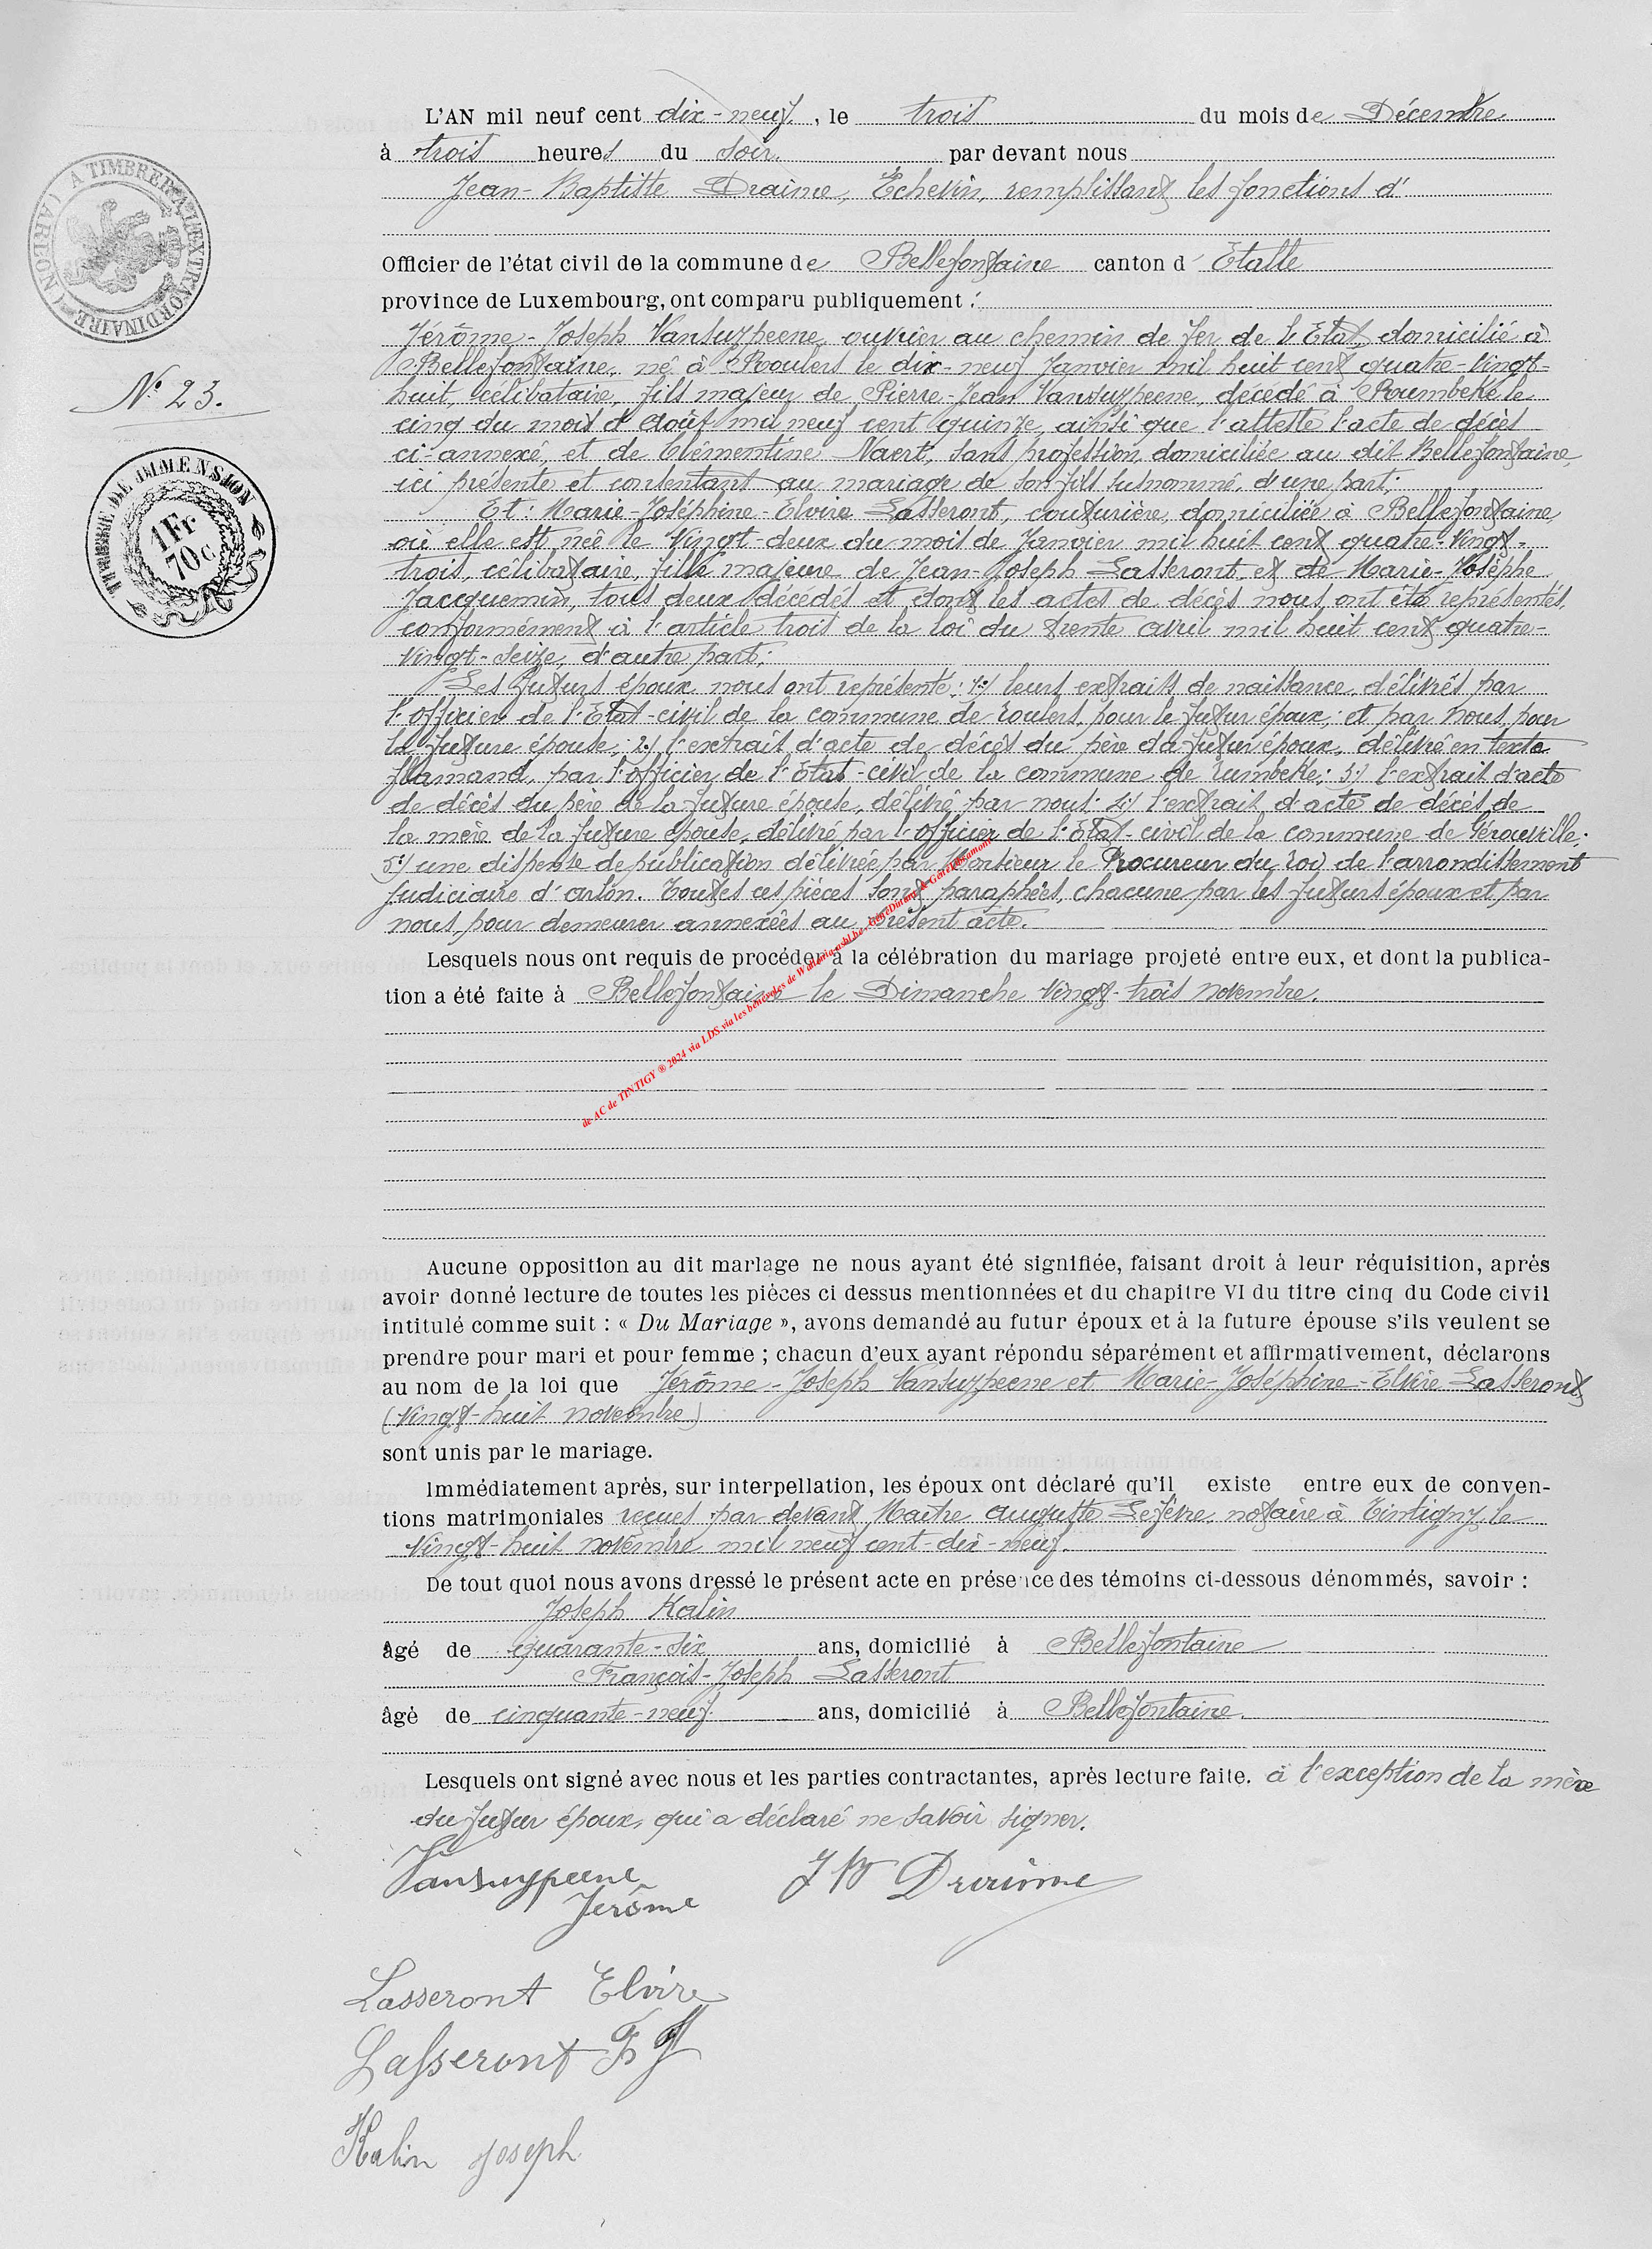 L'AN mil neuf cent dix-neuf, le trois du mois de Décembre
à trois heures du soir. par devant nous
Jean-Baptiste Draime, Echevin, remplissant les fonctions d'
Officier de l'état civil de la commune de Bellefontaine canton d'Etalle
province de Luxembourg, ont comparu publiquement :
Jérôme-Joseph Vansuypeene, ouvrier au chemin de fer de l'Etat, domicilié à
Bellefontaine, né à Roulers le dix-neuf Janvier mil huit cent quatre-vingt-
huit, célibataire, fils majeur de Pierre-Jean Vansuypeene, décédé à Roumbeke le
cinq du mois d'Août mil neuf cent quinze, ainsi que l'atteste l'acte de décès
ci-annexé, et de Clémentine Naert, sans profession, domiciliée au dit Bellefontaine,
ici présente et consentant au mariage de son fils susnommé, d'une part;
Et: Marie-Joséphine-Elvire Lasseront, couturière, domiciliée à Bellefontaine,
où elle est née le vingt-deux du mois de Janvier mil huit cent quatre-vingt-
trois, célibataire, fille majeure de Jean-Joseph Lasseront et de Marie-Josèphe
Jacquemin, tous deux décédés et dont les actes de décès nous ont été représentés,
conformément à l'article trois de la loi du trente avril mil huit cent quatre-
vingt-seize, d'autre part;
Les futurs époux nous ont représenté: 1°/ leurs extraits de naissance, délivrés par
l'officier de l'Etat-civil de la commune de Roulers, pour le futur époux; et par nous, pour
la future épouse; 2°/ l'extrait d'acte de décès du père du futur époux, délivré en texte
flamand, par l'officier de l'Etat-civil de la commune de Rumbeke; 3°/ l'extrait d'acte
de décès du père de la future épouse, délivré par nous; 4°/ l'extrait d'acte de décès de
la mère de la future épouse, délivré par l'officier de l'Etat-civil de la commune de Gérouville;
5°/ une dispense de publication délivrée par Monsieur le Procureur du roi de l'arrondissement
judiciaire d'Arlon. Toutes ces pièces sont paraphées, chacune par les futurs époux et par
nous, pour demeurer annexées au présent acte.
Lesquels nous ont requis de procéder à la célébration du mariage projeté entre eux, et dont la publica-
tion a été faite à Bellefontaine le Dimanche vingt-trois novembre.
Aucune opposition au dit mariage ne nous ayant été signifiée, faisant droit à leur réquisition, après
avoir donné lecture de toutes les pièces ci dessus mentionnées et du chapitre VI du titre cinq du Code civil
intitulé comme suit : « Du Mariage », avons demandé au futur époux et à la future épouse s'ils veulent se
prendre pour mari et pour femme ; chacun d'eux ayant répondu séparément et affirmativement, déclarons
au nom de la loi que Jérôme-Joseph Vansuypeene et Marie-Joséphine-Elvire Lasseront
(vingt-huit novembre)
sont unis par le mariage.
Immédiatement après, sur interpellation, les époux ont déclaré qu'il existe entre eux de conven-
tions matrimoniales reçues par devant Maître Auguste Lefèvre, notaire à Tintigny, le
vingt-huit novembre mil neuf cent-dix-neuf.
De tout quoi nous avons dressé le présent acte en présence des témoins ci-dessous dénommés, savoir :
Joseph Kalin
âgé de quarante-six ans, domicilié à Bellefontaine
François-Joseph Lasseront
âgé de cinquante-neuf ans, domicilié à Bellefontaine.
Lesquels ont signé avec nous et les parties contractantes, après lecture faite. à l'exception de la mère
du futur époux, qui a déclaré ne savoir signer.
Vansuypeene JB Draime
Jérôme
Lasseront Elvire
Lasseront F J
Kalin Joseph
A TIMBRER A L'EXTRAORDINAIRE (ARLON)
N° 23.
TIMBRE DE DIMENSION
1 Fr
70 C
de AC de TINTIGY ® 2024 via LDS via les bénévoles de Wallonia-asbl.be